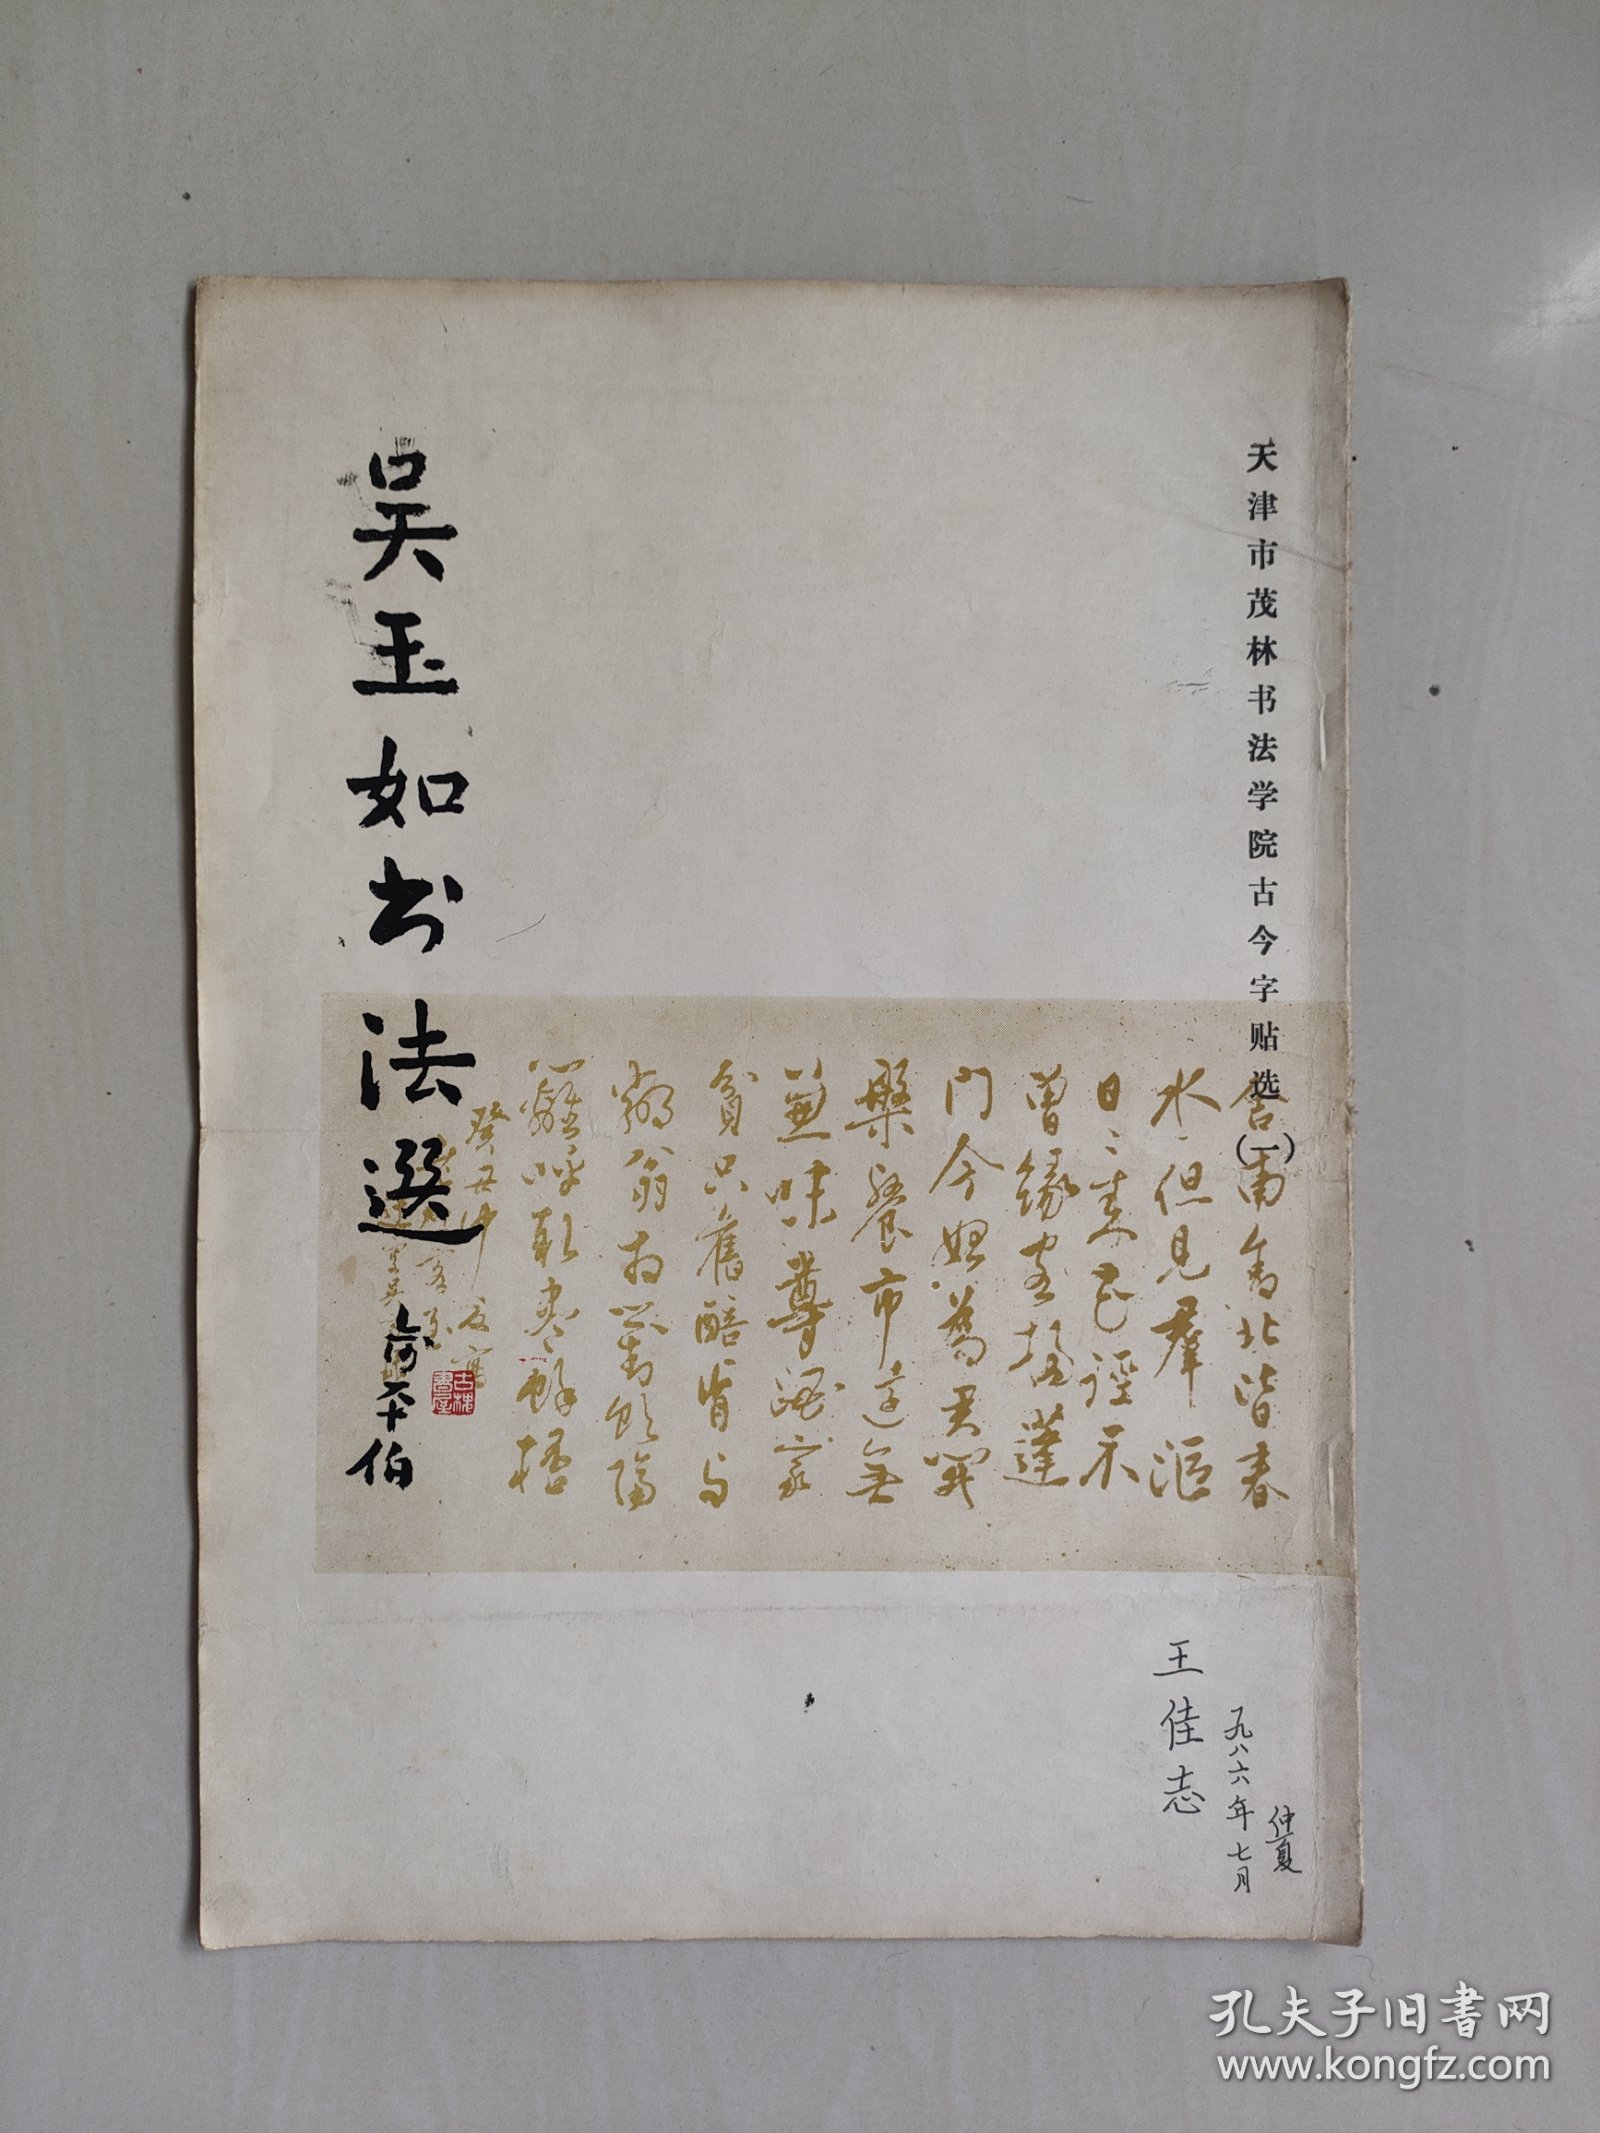 天津市茂林书法学院古今字贴选(一)
舍南舍北皆春
水但见群鸥
日日来花径不
曾缘客扫蓬
门今始为君开
盘飧市远无
兼味尊酒家
贫只旧醅肯与
邻翁相对饮隔
篱呼取尽余杯
癸丑
吴玉如书法選
俞平伯
王佳志
一九八六年七月
仲夏
孔夫子旧書网
www.kongfz.com